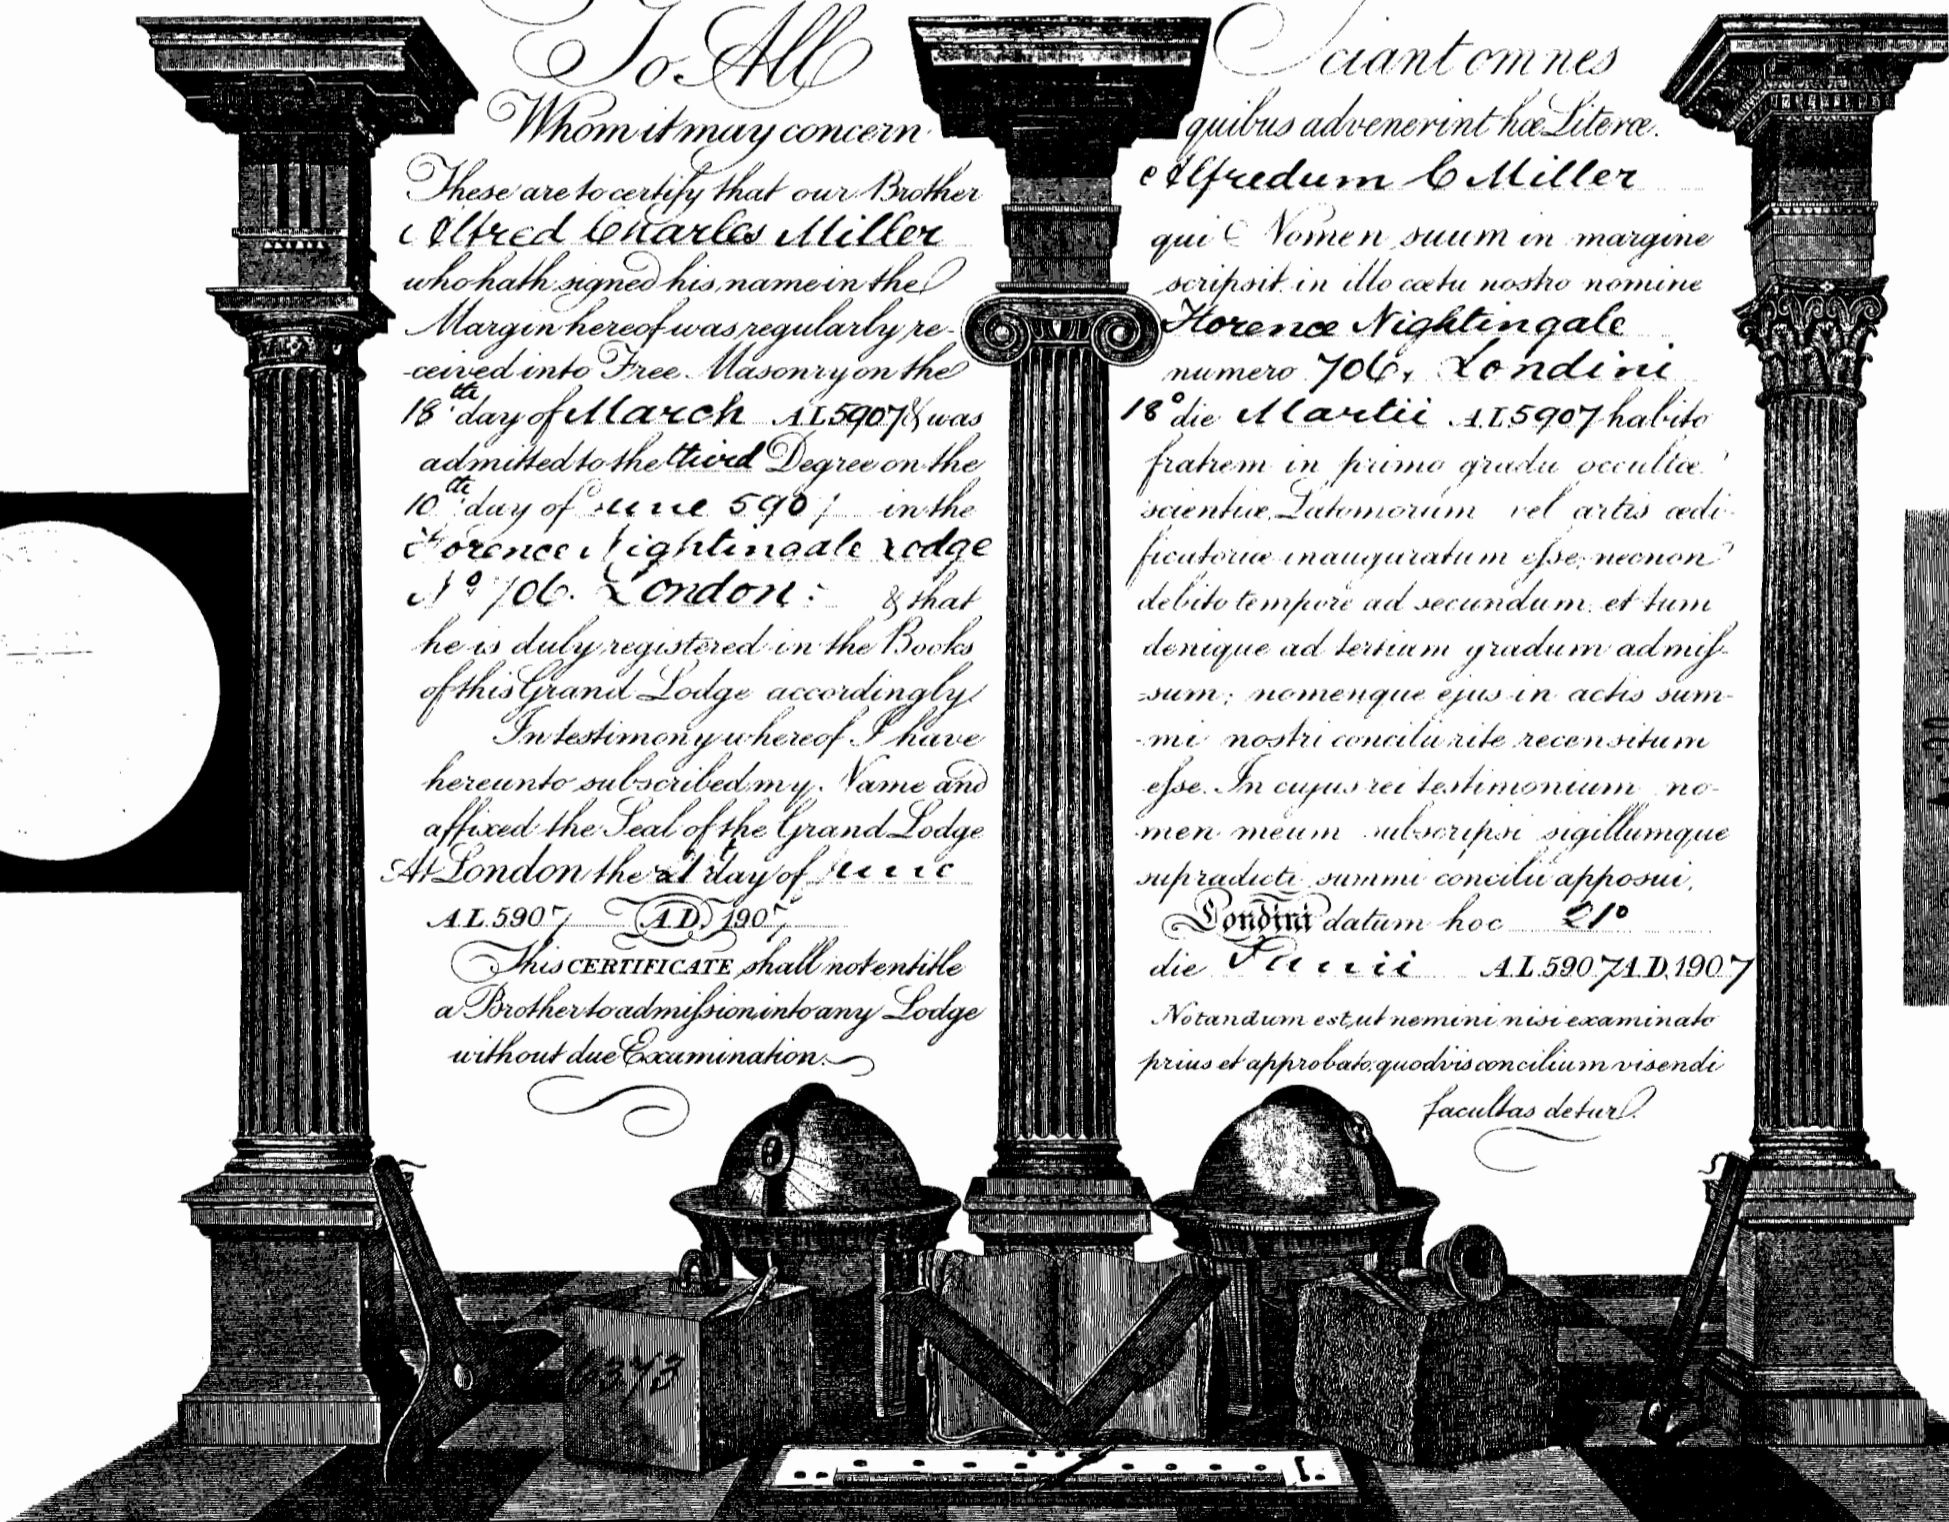 To All
Whom it may concern
These are to certify that our Brother
Alfred Charles Miller
who hath signed his name in the
Margin hereof was regularly re-
-ceived into Free Masonry on the
18th day of March A.L. 5907 & was
admitted to the third Degree on the
10th day of June 5907 in the
Florence Nightingale Lodge
No 706. London: & that
he is duly registered in the Books
of this Grand Lodge accordingly.
In testimony whereof I have
hereunto subscribed my Name and
affixed the Seal of the Grand Lodge
At London the 21st day of June
A.L. 5907 A.D. 1907
This CERTIFICATE shall not entitle
a Brother to admission into any Lodge
without due Examination.
Sciant omnes
quibus advenerint hæ Literæ.
Alfredum C Miller
qui Nomen suum in margine
scripsit in illo cœtu nostro nomine
Florence Nightingale
numero 706, Londini
18o die Martii A.L. 5907 habito
fratrem in primo gradu occultæ
scientiæ Latomorum vel artis ædi-
ficatoriæ inauguratum esse; necnon
debito tempore ad secundum, et tum
denique ad tertium gradum admis-
-sum; nomenque ejus in actis sum-
-mi nostri concilii rite recensitum
esse. In cujus rei testimonium no-
men meum subscripsi sigillumque
supradicti summi concilii apposui,
Londini datum hoc 21o
die Junii A.L. 5907 A.D. 1907
Notandum est, ut nemini nisi examinato
prius et approbato, quodvis concilium visendi
facultas detur.
6373